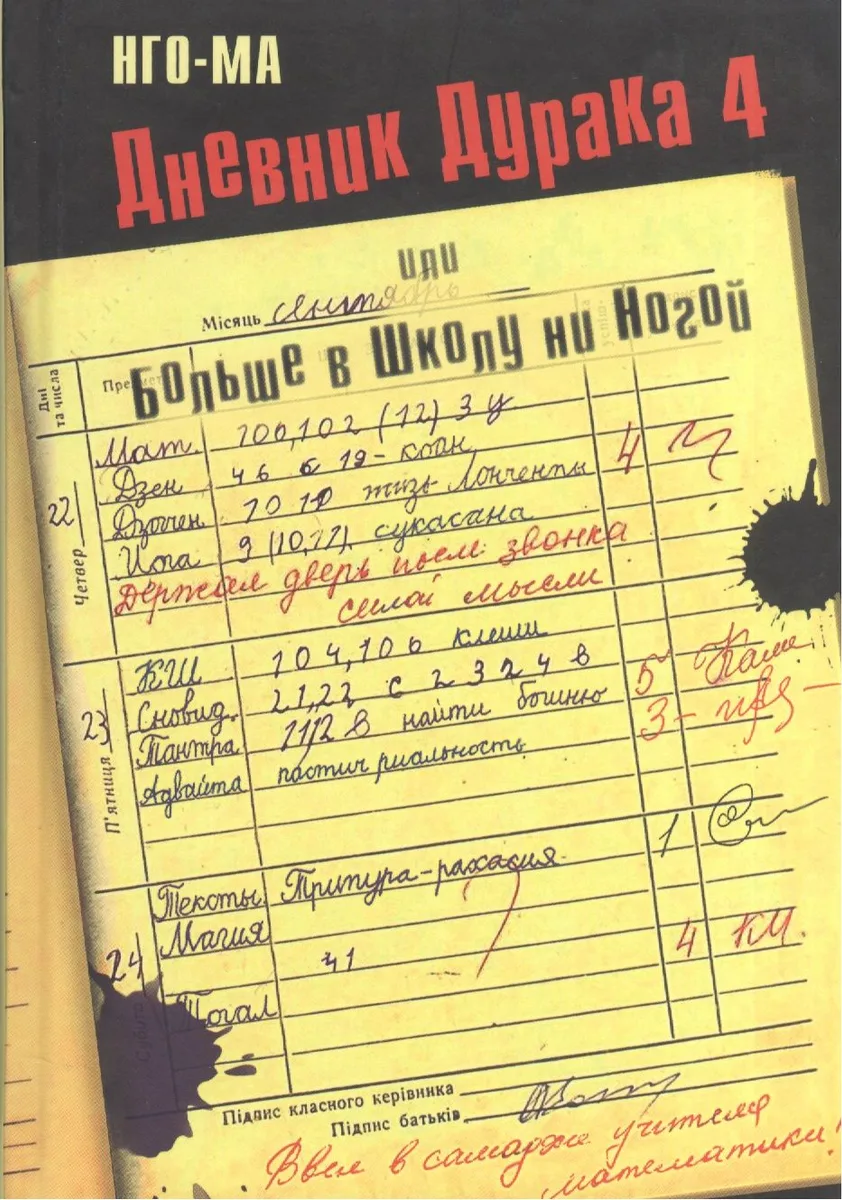 НГО-МА
Дневник Дурака 4
или
Місяць сентябрь
Больше в Школу ни Ногой
Дні та числа
22 Четвер
Мат. 100,102 (12) 3 у
Дзен 46 б 19 - коан
Дзогчен 10 19 тизь Лонченпы 4
Йога 9 (10,17) сукасана
Держал дверь посли звонка
силой мысли
23 П'ятниця
КШ 104,106 клеши
Сновид. 21,22 с 2 3 2 4 в 5
Тантра 11,12 в найти богиню 3-
Адвайта постич риальность
24 Субота
Тексты Трипура-рахасия 1
Магия 4 КМ.
41
Тогал
Підпис класного керівника
Підпис батьків
Ввел в самадхи учителя
математики!